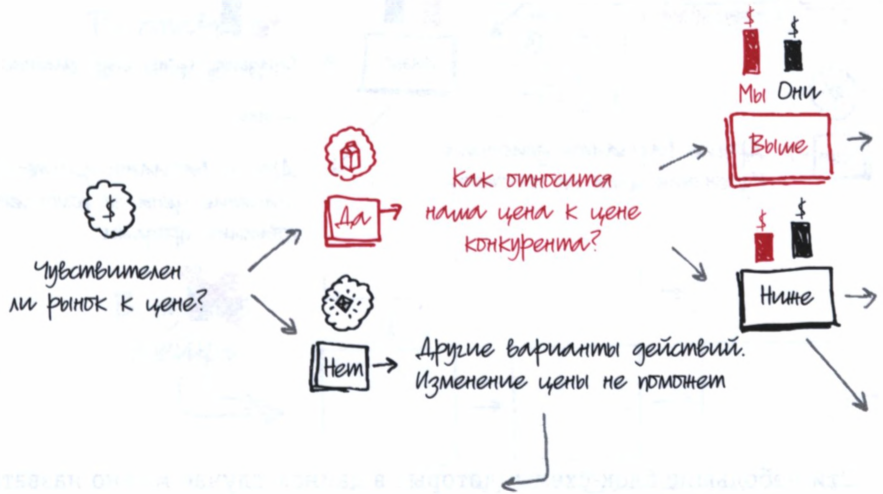 $
Чувствителен
ли рынок к цене?
Да
Как относится
наша цена к цене
конкурента?
$ $
Мы Они
Выше
$ $
Ниже
Нет
Другие варианты действий.
Изменение цены не поможет